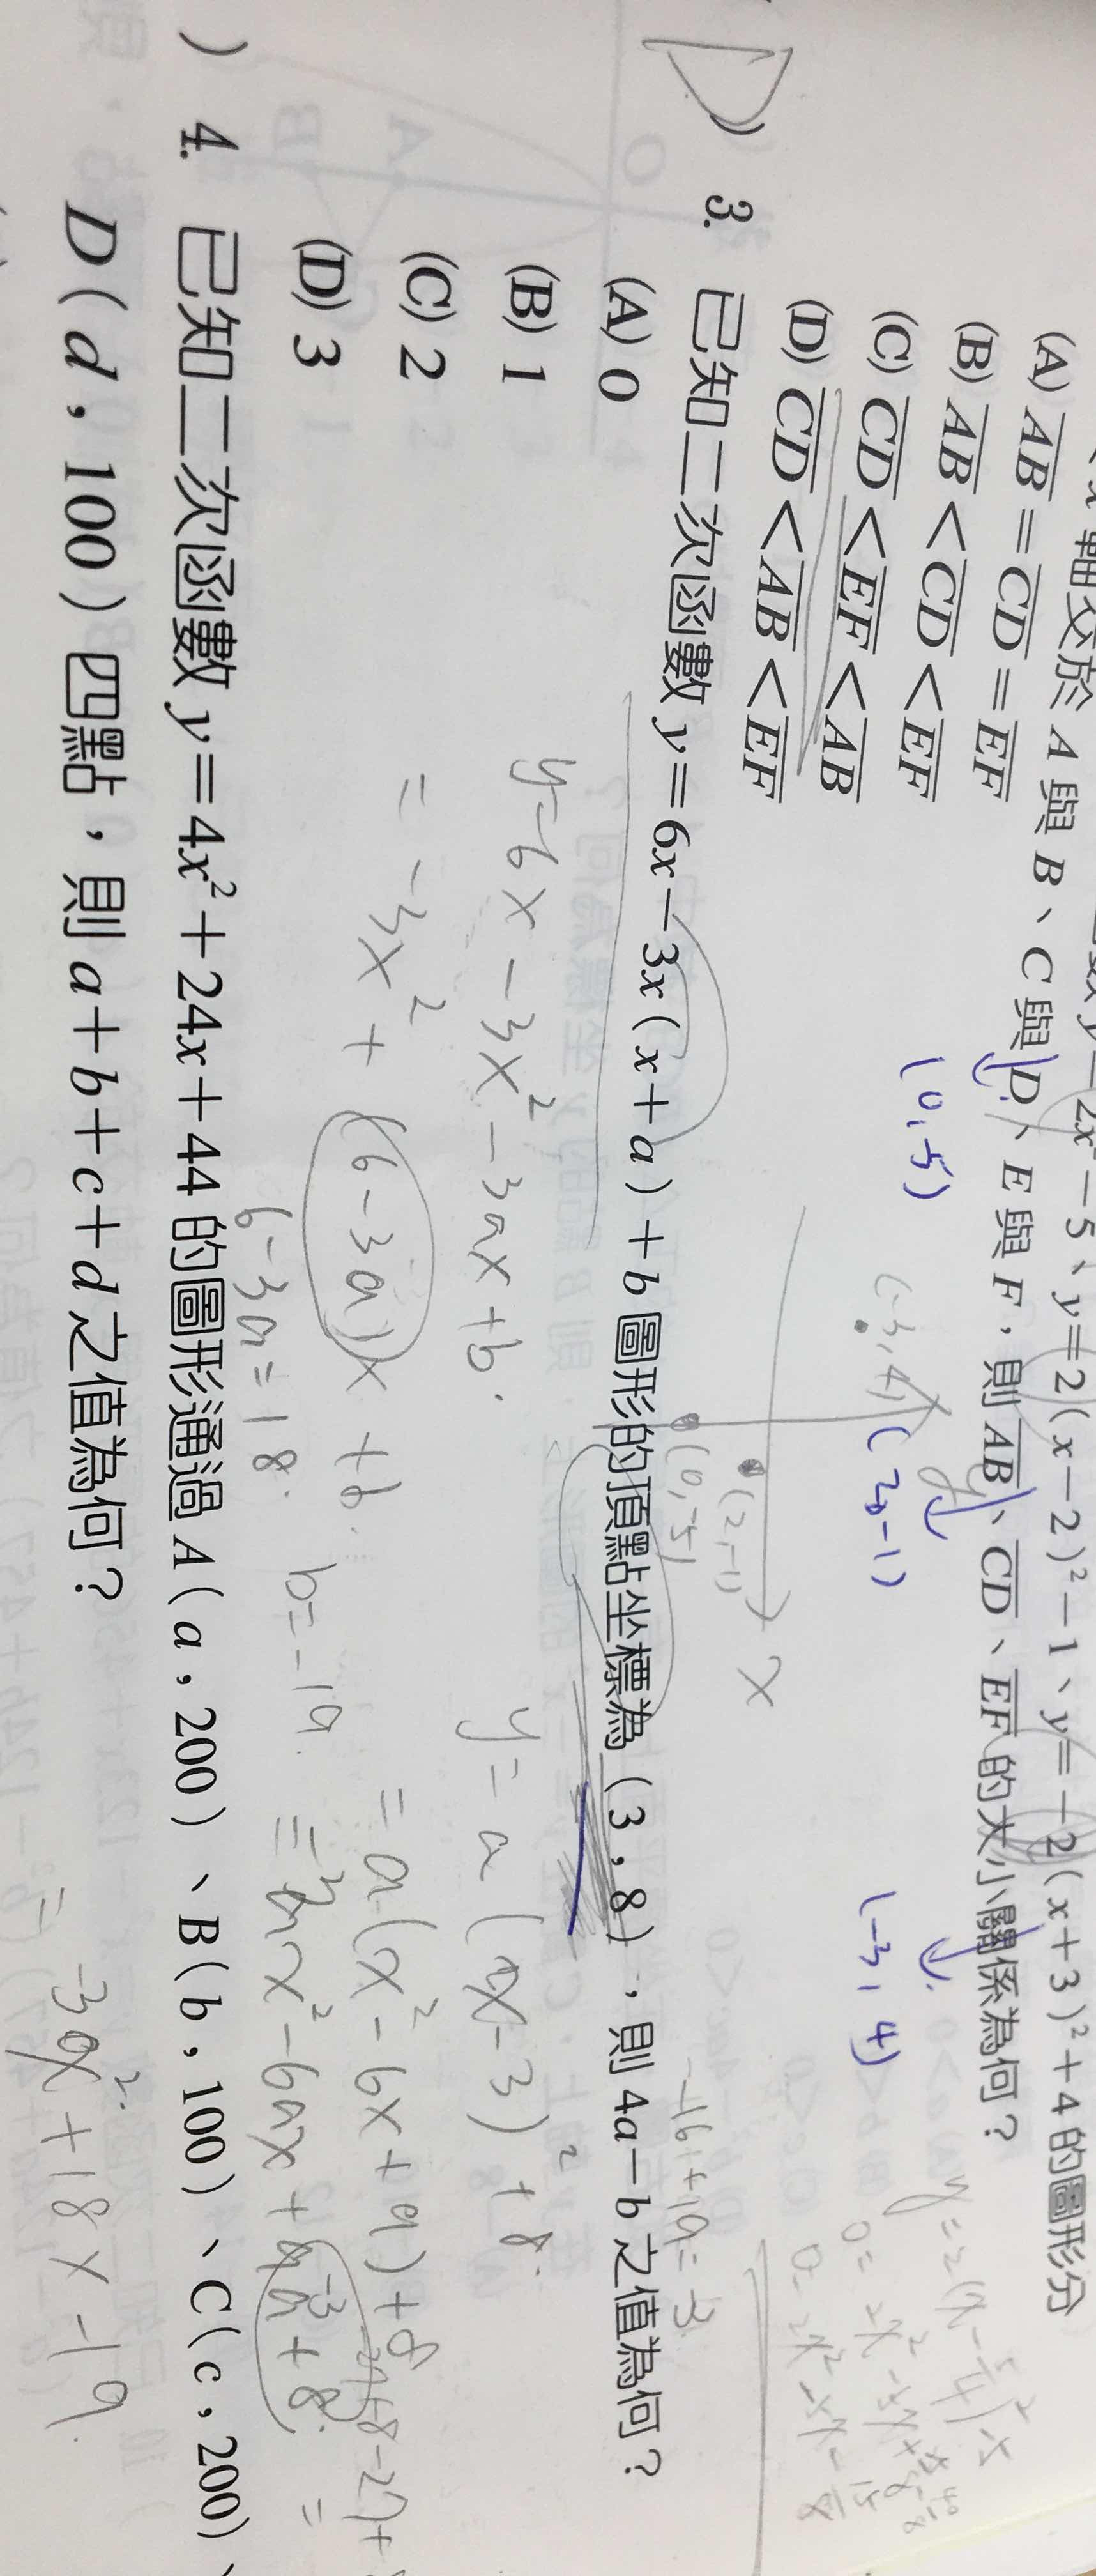 x 軸交於 A 與 B、C 與 D、E 與 F，則 AB、CD、EF 的大小關係為何？
y=2x²-5、y=2(x-2)²-1、y=-2(x+3)²+4 的圖形分
(0,-5)
(2,-1)
(-3,4)
(A) AB=CD=EF
(B) AB<CD<EF
(C) CD<EF<AB
(D) CD<AB<EF
(-3,4)
y
(2,-1)
(0,-5)
x
D) 3. 已知二次函數 y=6x-3x(x+a)+b 圖形的頂點坐標為(3,8)，則 4a-b 之值為何？
-16+19=3
(A) 0
(B) 1
(C) 2
(D) 3
y=6x-3x²-3ax+b.
=-3x²+(6-3a)x+b.
6-3a=18.
b=-19.
y=a(x-3)²+8.
=a(x²-6x+9)+8
-3x²+18x-19.
) 4. 已知二次函數 y=4x²+24x+44 的圖形通過 A(a,200)、B(b,100)、C(c,200)、
D(d,100)四點，則 a+b+c+d 之值為何？